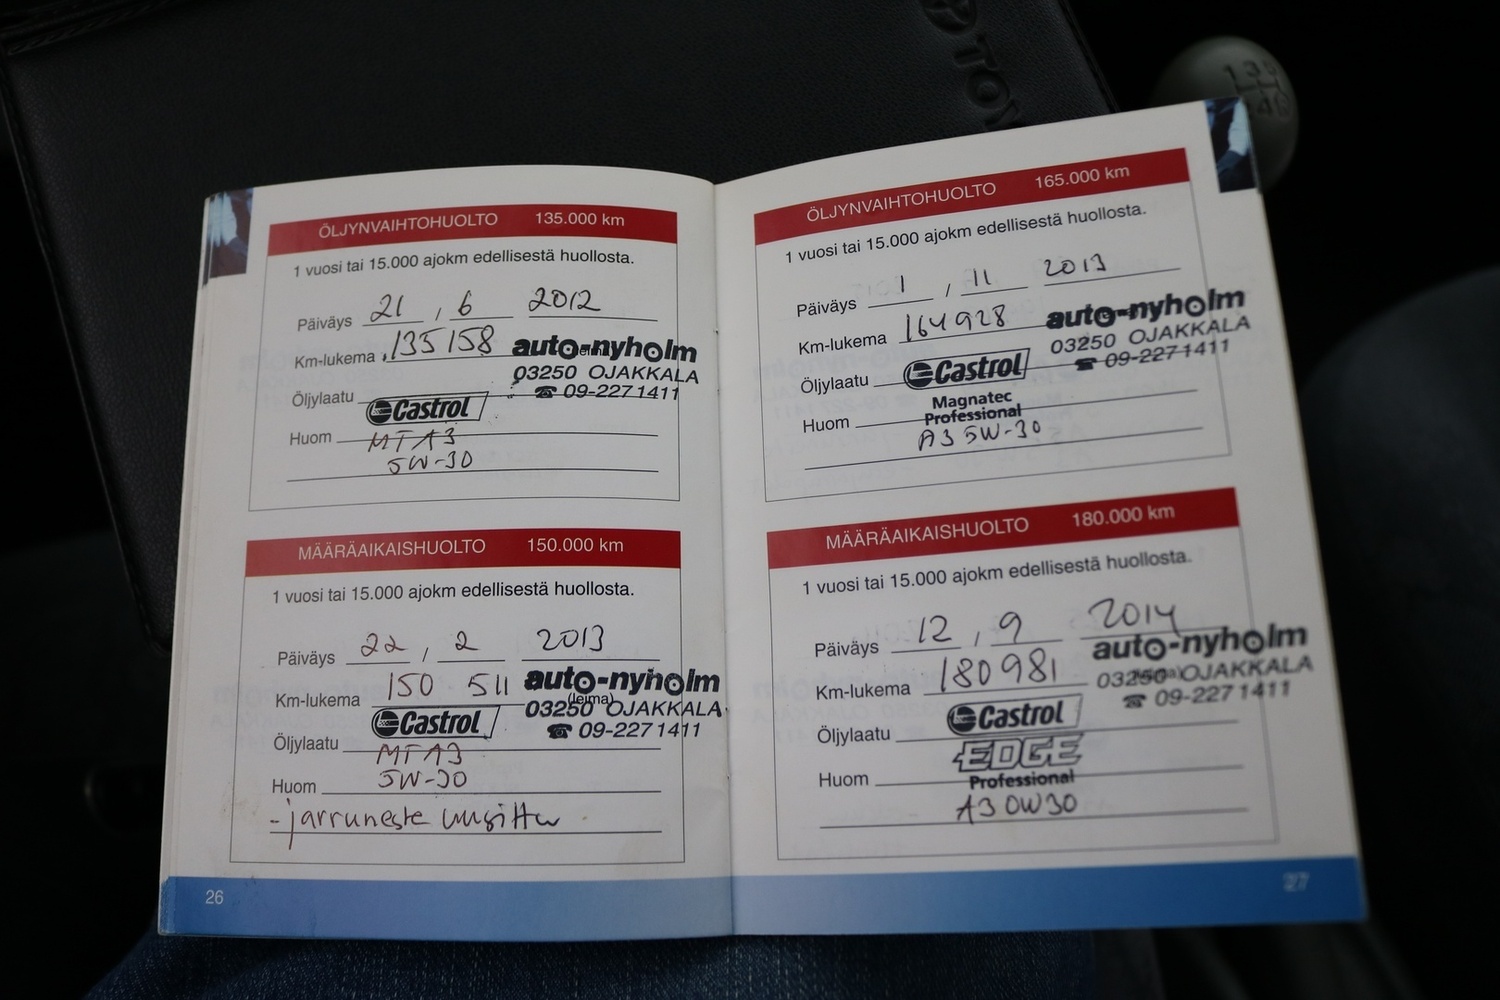 TOY
1 3 5
2 4 6
ÖLJYNVAIHTOHUOLTO 135.000 km
1 vuosi tai 15.000 ajokm edellisestä huollosta.
Päiväys 21 , 6 2012
Km-lukema 135 158 auto-nyholm
03250 OJAKKALA
Öljylaatu Castrol ☎ 09-2271411
Huom MT A3
5W-30
MÄÄRÄAIKAISHUOLTO 150.000 km
1 vuosi tai 15.000 ajokm edellisestä huollosta.
Päiväys 22 , 2 2013
Km-lukema 150 511 auto-nyholm
(leima)
03250 OJAKKALA
Öljylaatu Castrol ☎ 09-2271411
MT A3
Huom 5W-30
- jarruneste uusittu
26
ÖLJYNVAIHTOHUOLTO 165.000 km
1 vuosi tai 15.000 ajokm edellisestä huollosta.
Päiväys 1 , 11 2013
Km-lukema 164928 auto-nyholm
03250 OJAKKALA
Öljylaatu Castrol ☎ 09-2271411
Magnatec
Huom Professional
A3 5W-30
MÄÄRÄAIKAISHUOLTO 180.000 km
1 vuosi tai 15.000 ajokm edellisestä huollosta.
Päiväys 12 , 9 2014
Km-lukema 180981 auto-nyholm
03250 OJAKKALA
☎ 09-2271411
Öljylaatu Castrol
EDGE
Huom Professional
A3 0W30
27